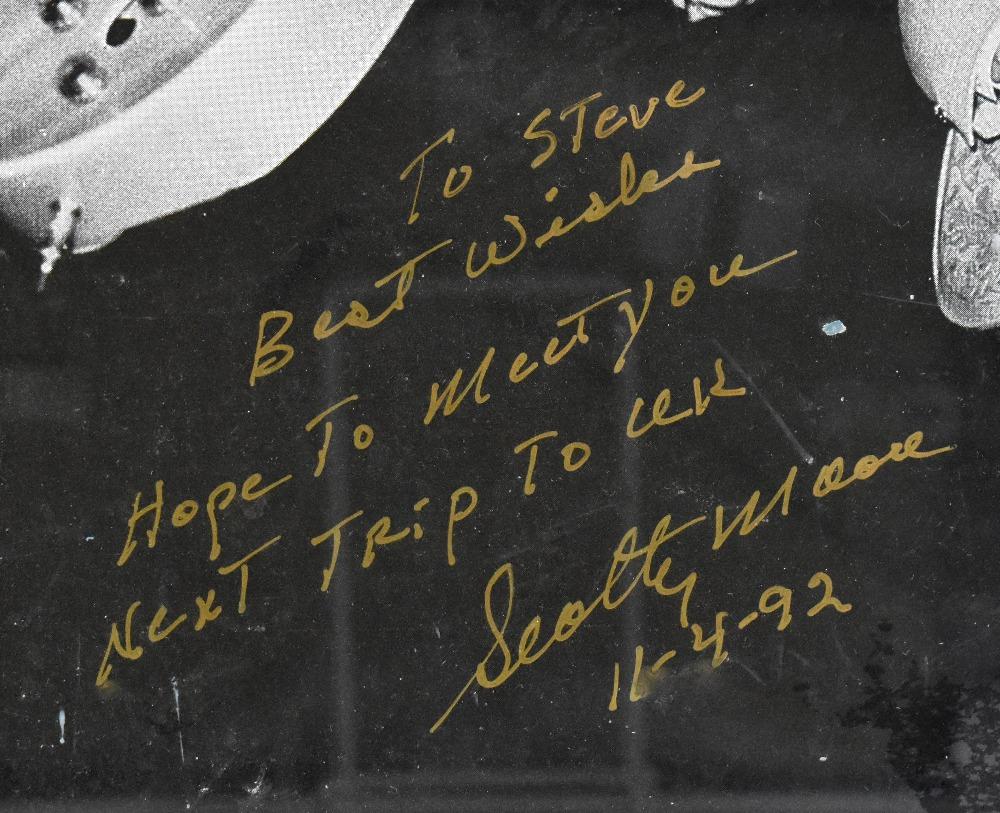 To Steve
Best Wishes
Hope To Meet you
Next Trip To UK
Scotty Moore
11-4-92